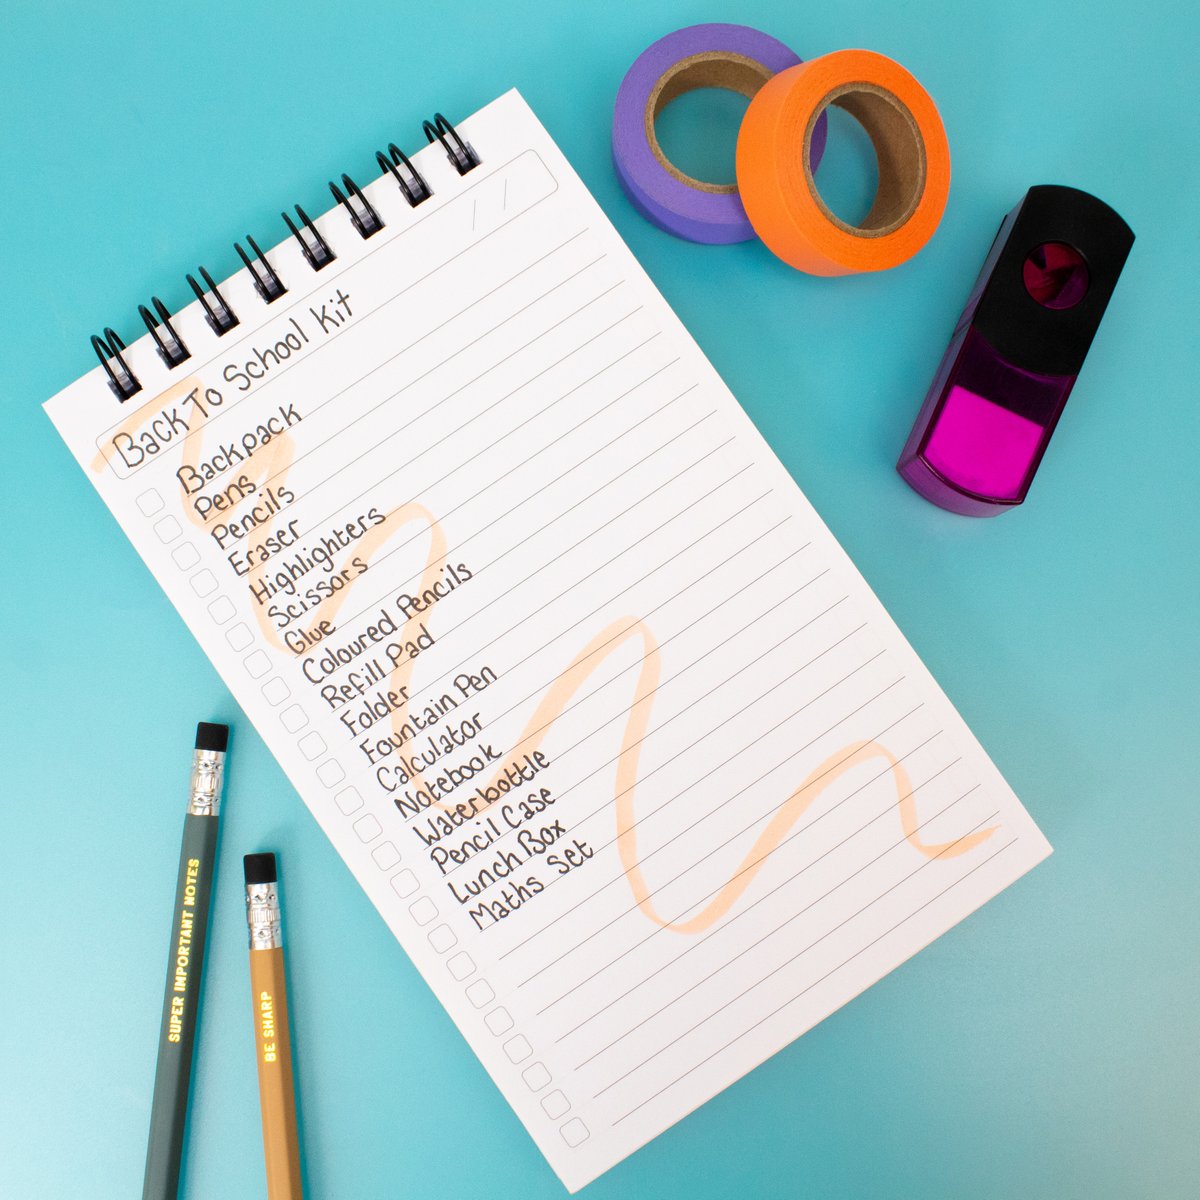 / /
Back To School Kit
Backpack
Pens
Pencils
Eraser
Highlighters
Scissors
Glue
Coloured Pencils
Refill Pad
Folder
Fountain Pen
Calculator
Notebook
Waterbottle
Pencil Case
Lunch Box
Maths Set
SUPER IMPORTANT NOTES
BE SHARP